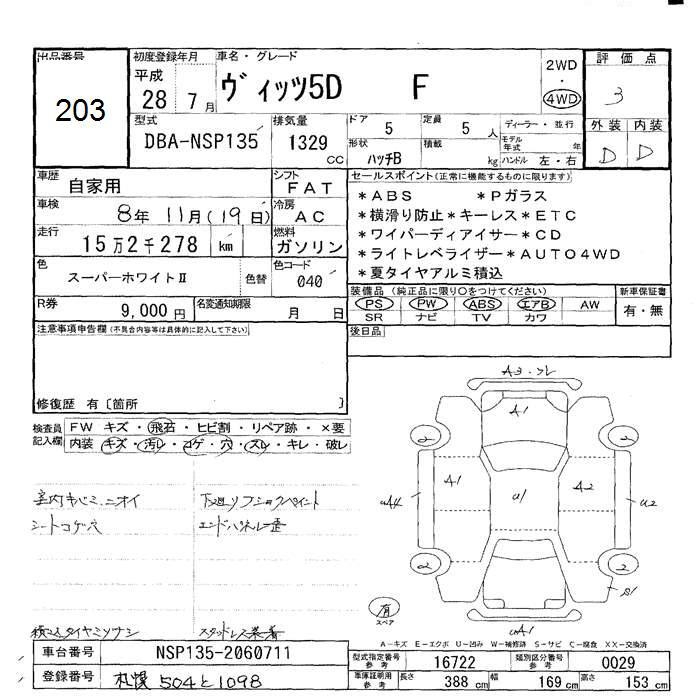 出品番号
203
初度登録年月
平成
28 7月
車名・グレード
ヴィッツ5D F
2WD
・
4WD
評価点
3
型式
DBA-NSP135
排気量
1329
CC
ドア
5
定員
5 人
形状
ハッチB
積載
kg
ディーラー・並行
モデル年式 年
ハンドル 左・右
外装 内装
D D
車歴
自家用
シフト
FAT
車検
8年 11月(19日)
冷房
AC
走行
15万2千278 km
燃料
ガソリン
色
スーパーホワイトⅡ
色替
色コード
040
R券
9,000円
名変通知期限
月 日
セールスポイント(正常に機能するものに限ります)
*ABS *Pガラス
*横滑り防止*キーレス*ETC
*ワイパーディアイサー*CD
*ライトレベライザー*AUTO4WD
*夏タイヤアルミ積込
装備品 (純正品に限り○をつけてください)
PS PW ABS エアB AW
SR ナビ TV カワ
新車保証書
有・無
後日品
注意事項申告欄(不具合内容等は具体的に記入して下さい)
修復歴 有〔箇所 〕
検査員記入欄
FW キズ・飛石・ヒビ割・リペア跡・×要
内装 キズ・汚レ・コゲ・穴・スレ・キレ・破レ
室内キバミ、ニオイ
シートコゲ穴
下廻リフショクペイント
エンドパネル歪
積込タイヤミゾナシ
スタッドレス装着
A3・ワレ
A1
2
2
A1
A2
U1
U2
2
2
S1
有
スペア
A1
A-キズ E-エクボ U-凹み W-補修済 S-サビ C-腐食 XX-交換済
車台番号
NSP135-2060711
登録番号
札幌 504と1098
型式指定番号 参考
16722
類別区分番号 参考
0029
車庫証明用 参考
長さ 388cm
幅 169cm
高さ 153cm